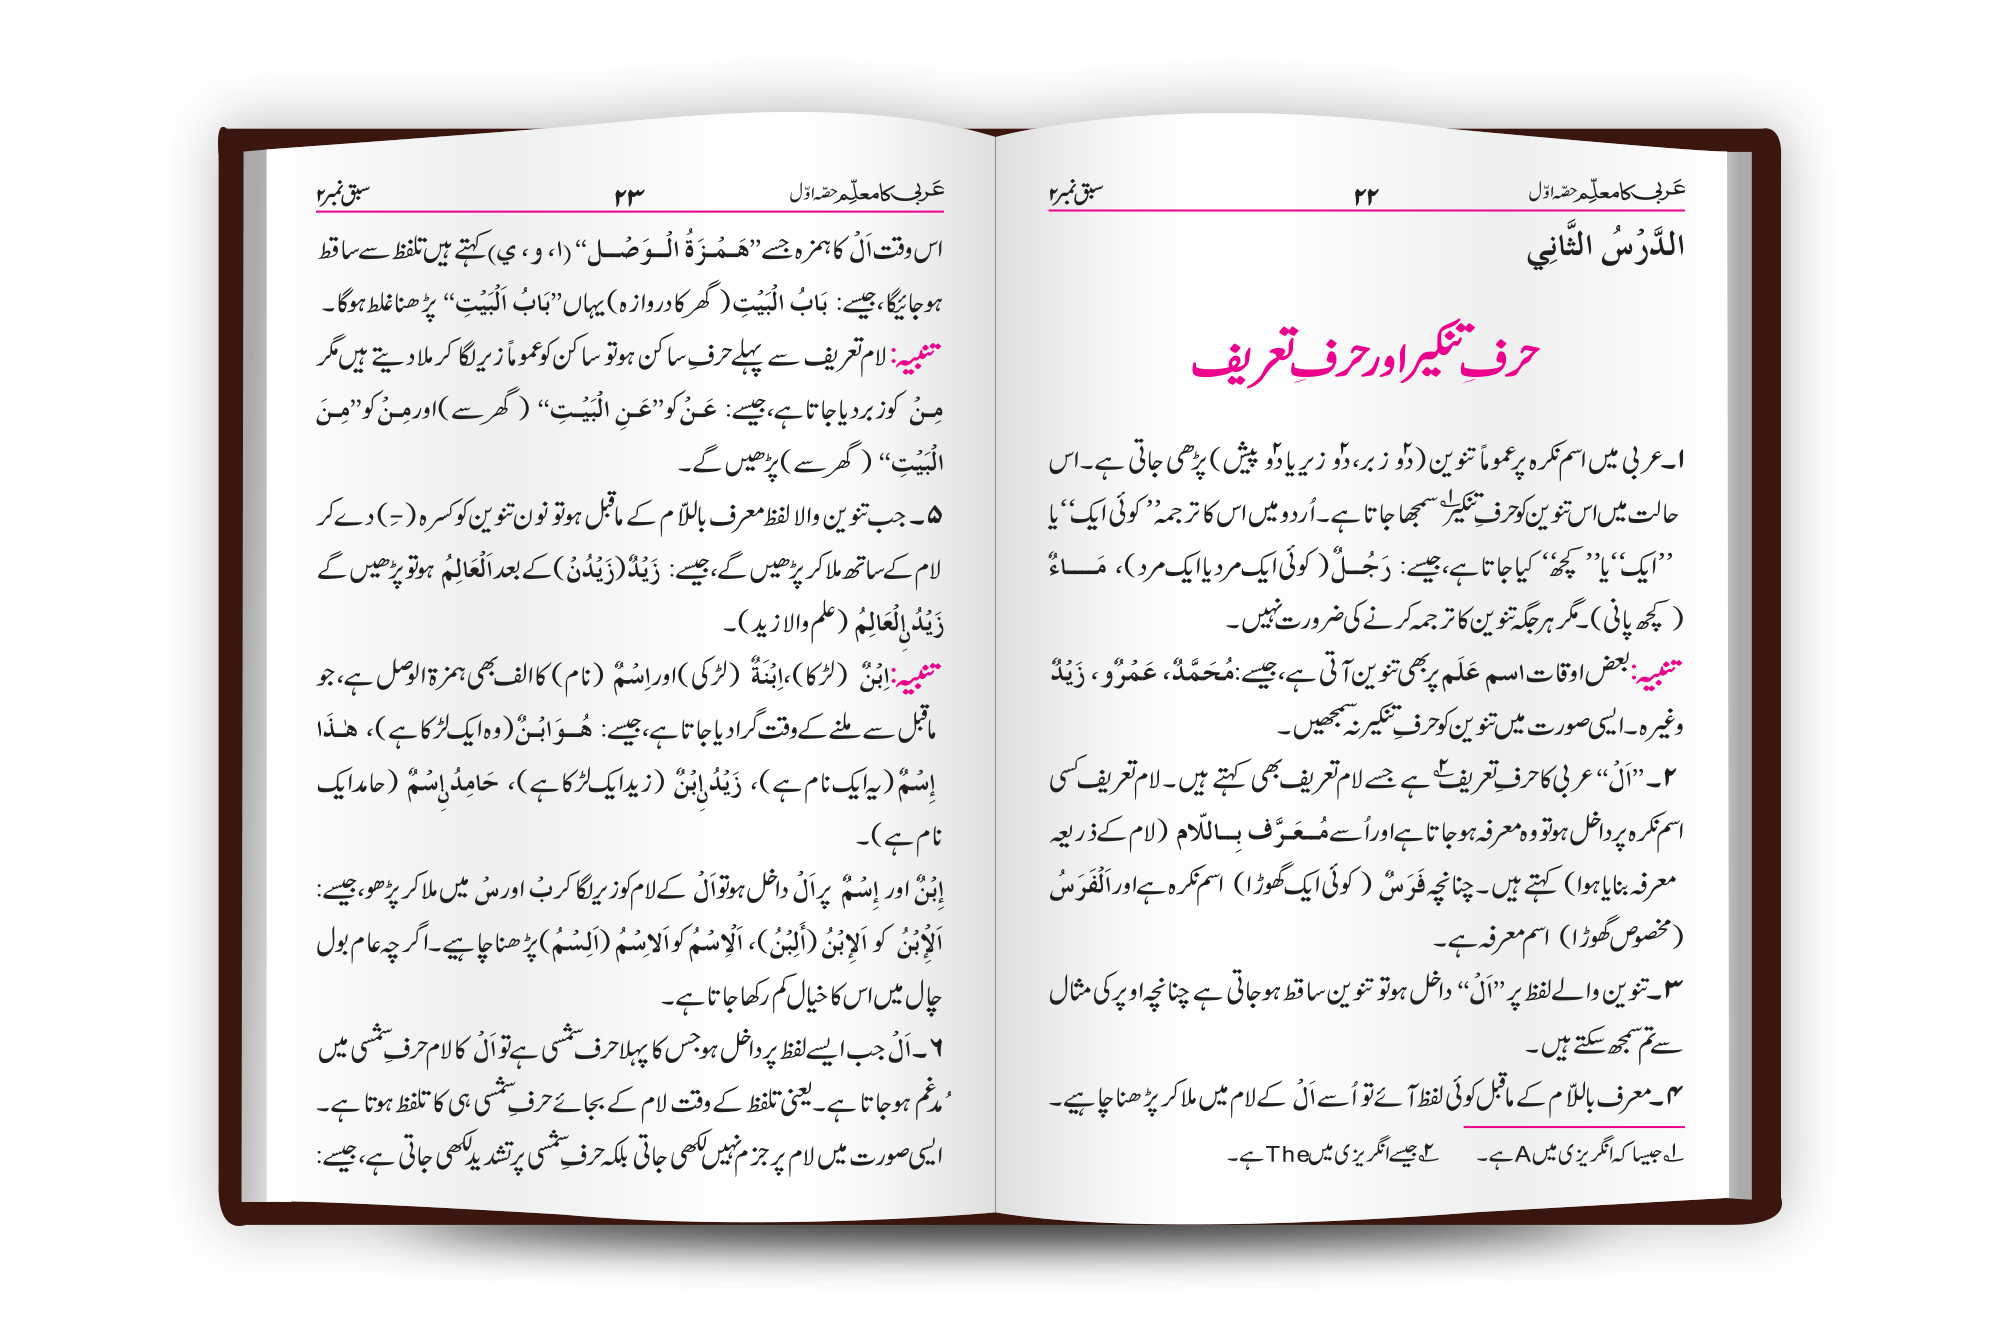 عَربی کا معلّم حصّہ اوّل ۲۲ سبق نمبر۲
الدَّرْسُ الثَّانِي
حرفِ تنکیر اور حرفِ تعریف
۱۔عربی میں اسم نکرہ پر عموماً تنوین (دو زبر، دو زیر یا دو پیش) پڑھی جاتی ہے۔ اس
حالت میں اس تنوین کو حرفِ تنکیر۱؎ سمجھا جاتا ہے۔ اُردو میں اس کا ترجمہ ’’کوئی ایک‘‘ یا
’’ایک‘‘ یا ’’کچھ‘‘ کیا جاتا ہے، جیسے: رَجُـلٌ (کوئی ایک مرد یا ایک مرد)، مَـاءٌ
(کچھ پانی)۔ مگر ہر جگہ تنوین کا ترجمہ کرنے کی ضرورت نہیں۔
تنبیہ: بعض اوقات اسم عَلَم پر بھی تنوین آتی ہے، جیسے: مُحَمَّدٌ، عَمْرٌو، زَيْدٌ
وغیرہ۔ ایسی صورت میں تنوین کو حرفِ تنکیر نہ سمجھیں۔
۲۔ ’’اَلْ‘‘ عربی کا حرفِ تعریف۲؎ ہے جسے لام تعریف بھی کہتے ہیں۔ لام تعریف کسی
اسم نکرہ پر داخل ہو تو وہ معرفہ ہو جاتا ہے اور اُسے مُـعَـرَّف بِـاللّام (لام کے ذریعہ
معرفہ بنایا ہوا) کہتے ہیں۔ چنانچہ فَرَسٌ (کوئی ایک گھوڑا) اسم نکرہ ہے اور اَلْفَرَسُ
(مخصوص گھوڑا) اسم معرفہ ہے۔
۳۔تنوین والے لفظ پر ’’اَلْ‘‘ داخل ہو تو تنوین ساقط ہو جاتی ہے چنانچہ اوپر کی مثال
سے تم سمجھ سکتے ہیں۔
۴۔معرف باللّام کے ماقبل کوئی لفظ آئے تو اُسے اَلْ کے لام میں ملا کر پڑھنا چاہیے۔
۱؎ جیسا کہ انگریزی میں A ہے۔ ۲؎ جیسے انگریزی میں The ہے۔
عَربی کا معلّم حصّہ اوّل ۲۳ سبق نمبر۲
اس وقت اَلْ کا ہمزہ جسے ’’هَـمْـزَةُ الْـوَصْـل‘‘ (ا، و، ي) کہتے ہیں تلفظ سے ساقط
ہو جائیگا، جیسے: بَابُ الْبَيْتِ (گھر کا دروازہ) یہاں ’’بَابُ اَلْبَيْتِ‘‘ پڑھنا غلط ہوگا۔
تنبیہ: لام تعریف سے پہلے حرفِ ساکن ہو تو ساکن کو عموماً زیر لگا کر ملا دیتے ہیں مگر
مِـنْ کو زبر دیا جاتا ہے، جیسے: عَـنْ کو ’’عَـنِ الْبَيْـتِ‘‘ (گھر سے) اور مِـنْ کو ’’مِـنَ
الْبَيْتِ‘‘ (گھر سے) پڑھیں گے۔
۵۔ جب تنوین والا لفظ معرف باللّام کے ماقبل ہو تو نون تنوین کو کسرہ (ـِ) دے کر
لام کے ساتھ ملا کر پڑھیں گے، جیسے: زَيْدٌ (زَيْدُنْ) کے بعد اَلْعَالِمُ ہو تو پڑھیں گے
زَيْدُ نِ الْعَالِمُ (علم والا زید)۔
تنبیہ: اِبْنٌ (لڑکا)، اِبْنَةٌ (لڑکی) اور اِسْمٌ (نام) کا الف بھی ہمزۃ الوصل ہے، جو
ماقبل سے ملنے کے وقت گرا دیا جاتا ہے، جیسے: هُـوَ ابْـنٌ (وہ ایک لڑکا ہے)، هٰـذَا
اِسْمٌ (یہ ایک نام ہے)، زَيْدُ نِ ابْنٌ (زید ایک لڑکا ہے)، حَامِدُ نِ اسْمٌ (حامد ایک
نام ہے)۔
اِبْنٌ اور اِسْمٌ پر اَلْ داخل ہو تو اَلْ کے لام کو زیر لگا کر بْ اور سْ میں ملا کر پڑھو، جیسے:
اَلْاِبْنُ کو اَلاِبْنُ (أَلِبْنُ)، اَلْاِسْمُ کو اَلاِسْمُ (اَلِسْمُ) پڑھنا چاہیے۔ اگرچہ عام بول
چال میں اس کا خیال کم رکھا جاتا ہے۔
۶۔ اَلْ جب ایسے لفظ پر داخل ہو جس کا پہلا حرف شمسی ہے تو اَلْ کا لام حرفِ شمسی میں
مُدغم ہو جاتا ہے۔ یعنی تلفظ کے وقت لام کے بجائے حرفِ شمسی ہی کا تلفظ ہوتا ہے۔
ایسی صورت میں لام پر جزم نہیں لکھی جاتی بلکہ حرفِ شمسی پر تشدید لکھی جاتی ہے، جیسے: